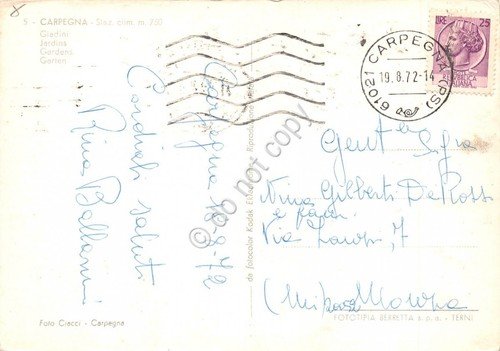 5 - CARPEGNA - Staz. clim. m. 750
Giardini
Jardins
Gardens
Garten
Carpegna 18-8-72
Cordiali saluti
Rina
Foto Ciacci - Carpegna
da fotocolor Kodak Ektachrome
do not copy
LIRE 25
61021 CARPEGNA (PS)
19.8.72-14
Gent Sgra
Nina Gilberti De Rossi
e fam.
Via 7
FOTOTIPIA BERRETTA s.p.a. - TERNI